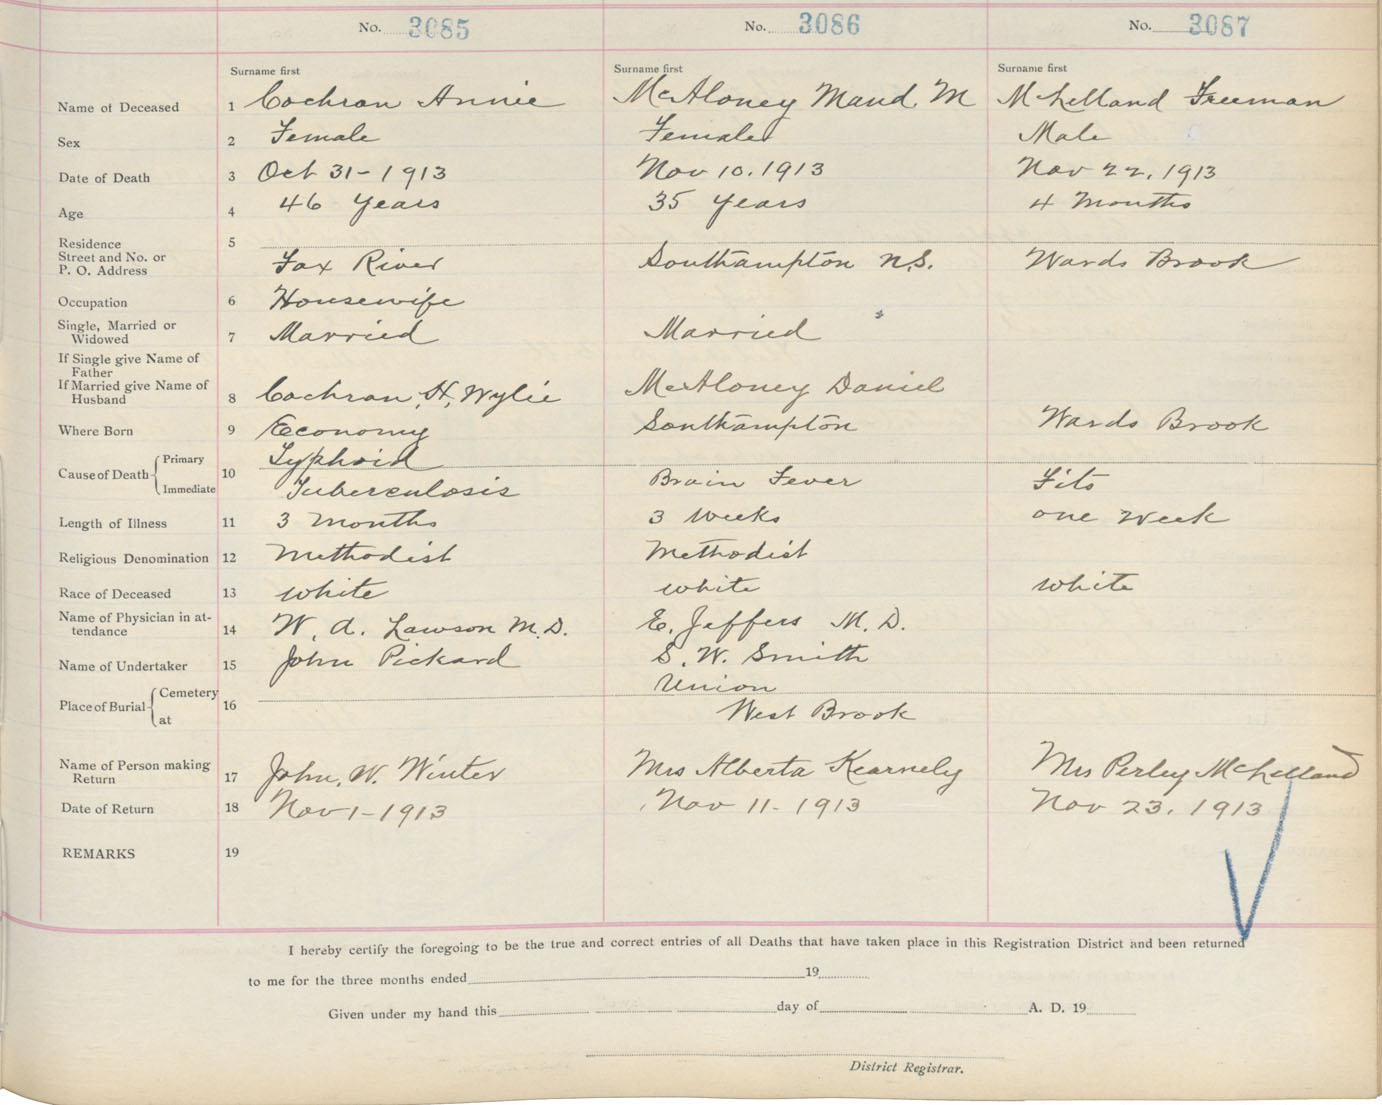 No. 3085 No. 3086 No. 3087
Surname first Surname first Surname first
Name of Deceased 1 Cochran Annie McAloney Maud M McLelland Freeman
Sex 2 Female Female Male
Date of Death 3 Oct 31-1913 Nov 10, 1913 Nov 22, 1913
Age 4 46 Years 35 Years 4 Months
Residence 5
Street and No. or
P. O. Address Fox River Southampton N.S. Wards Brook
Occupation 6 Housewife
Single, Married or
Widowed 7 Married Married
If Single give Name of
Father
If Married give Name of
Husband 8 Cochran, H, Wylie McAloney Daniel
Where Born 9 Economy Southampton Wards Brook
Cause of Death Primary 10 Typhoid
Immediate Tuberculosis Brain Fever Fits
Length of Illness 11 3 Months 3 Weeks one Week
Religious Denomination 12 Methodist Methodist
Race of Deceased 13 white white white
Name of Physician in at-
tendance 14 W. A. Lawson M.D. E. Jeffers M. D.
Name of Undertaker 15 John Pickard S. W. Smith
Place of Burial Cemetery 16 Union
at West Brook
Name of Person making
Return 17 John. W. Winter Mrs Alberta Kearnely Mrs Perley McLelland
Date of Return 18 Nov 1-1913 Nov 11-1913 Nov 23, 1913
REMARKS 19
I hereby certify the foregoing to be the true and correct entries of all Deaths that have taken place in this Registration District and been returned
to me for the three months ended 19
Given under my hand this day of A. D. 19
District Registrar.